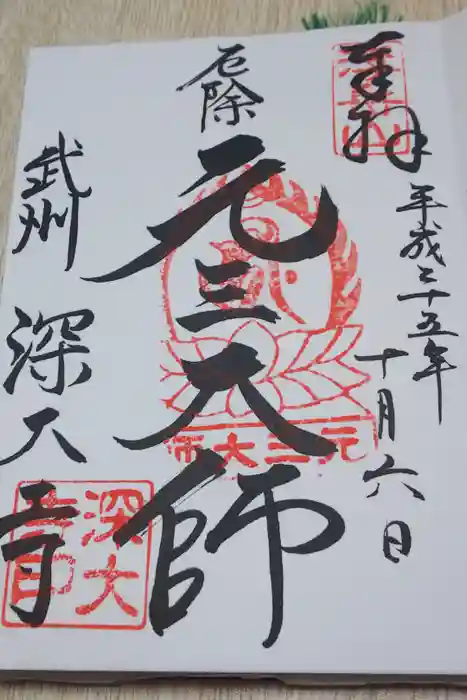 奉拝
平成二十五年
十月六日
厄除
元三大師
元三大師
武州
深大寺
深大寺印